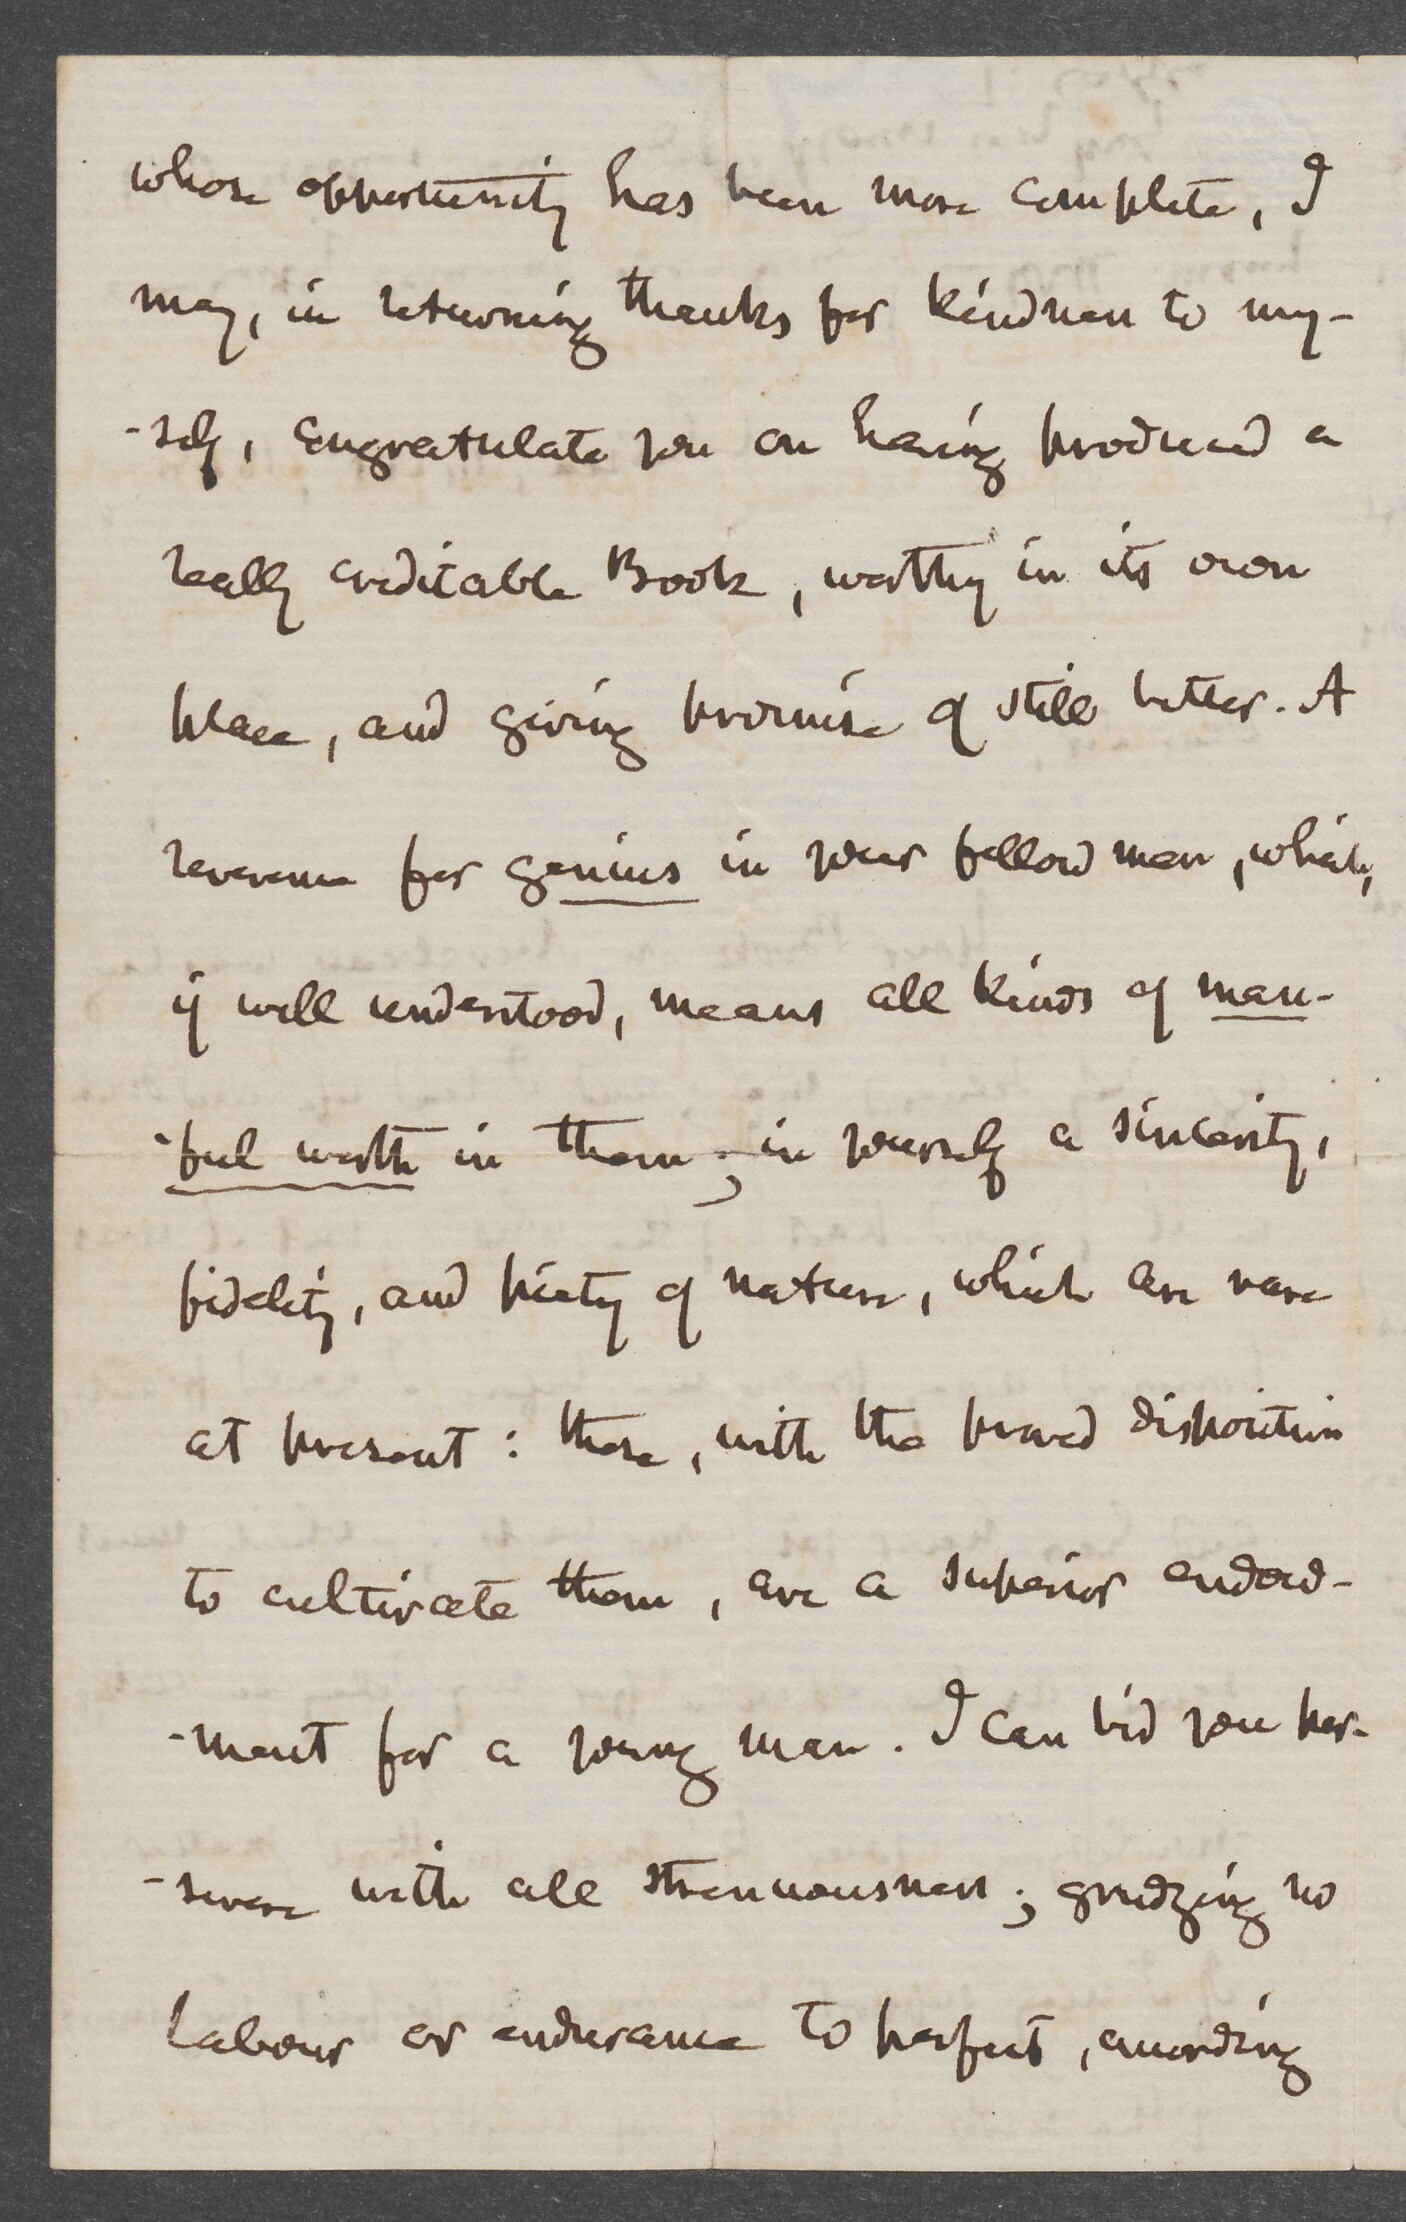 whose opportunity has been more complete, I
may, in returning thanks for kindness to my-
-self, congratulate you on having produced a
really creditable Book, worthy in its own
place, and giving promise of still better. A
reverence for genius in your fellow men, which,
if well understood, means all kinds of man-
-ful worth in them; in yourself a sincerity,
fidelity, and piety of nature, which are rare
at present: these, with the proved disposition
to cultivate them, are a superior endow-
-ment for a young man. I can bid you per-
-severe with all strenuousness; grudging no
labour or endurance to perfect, according